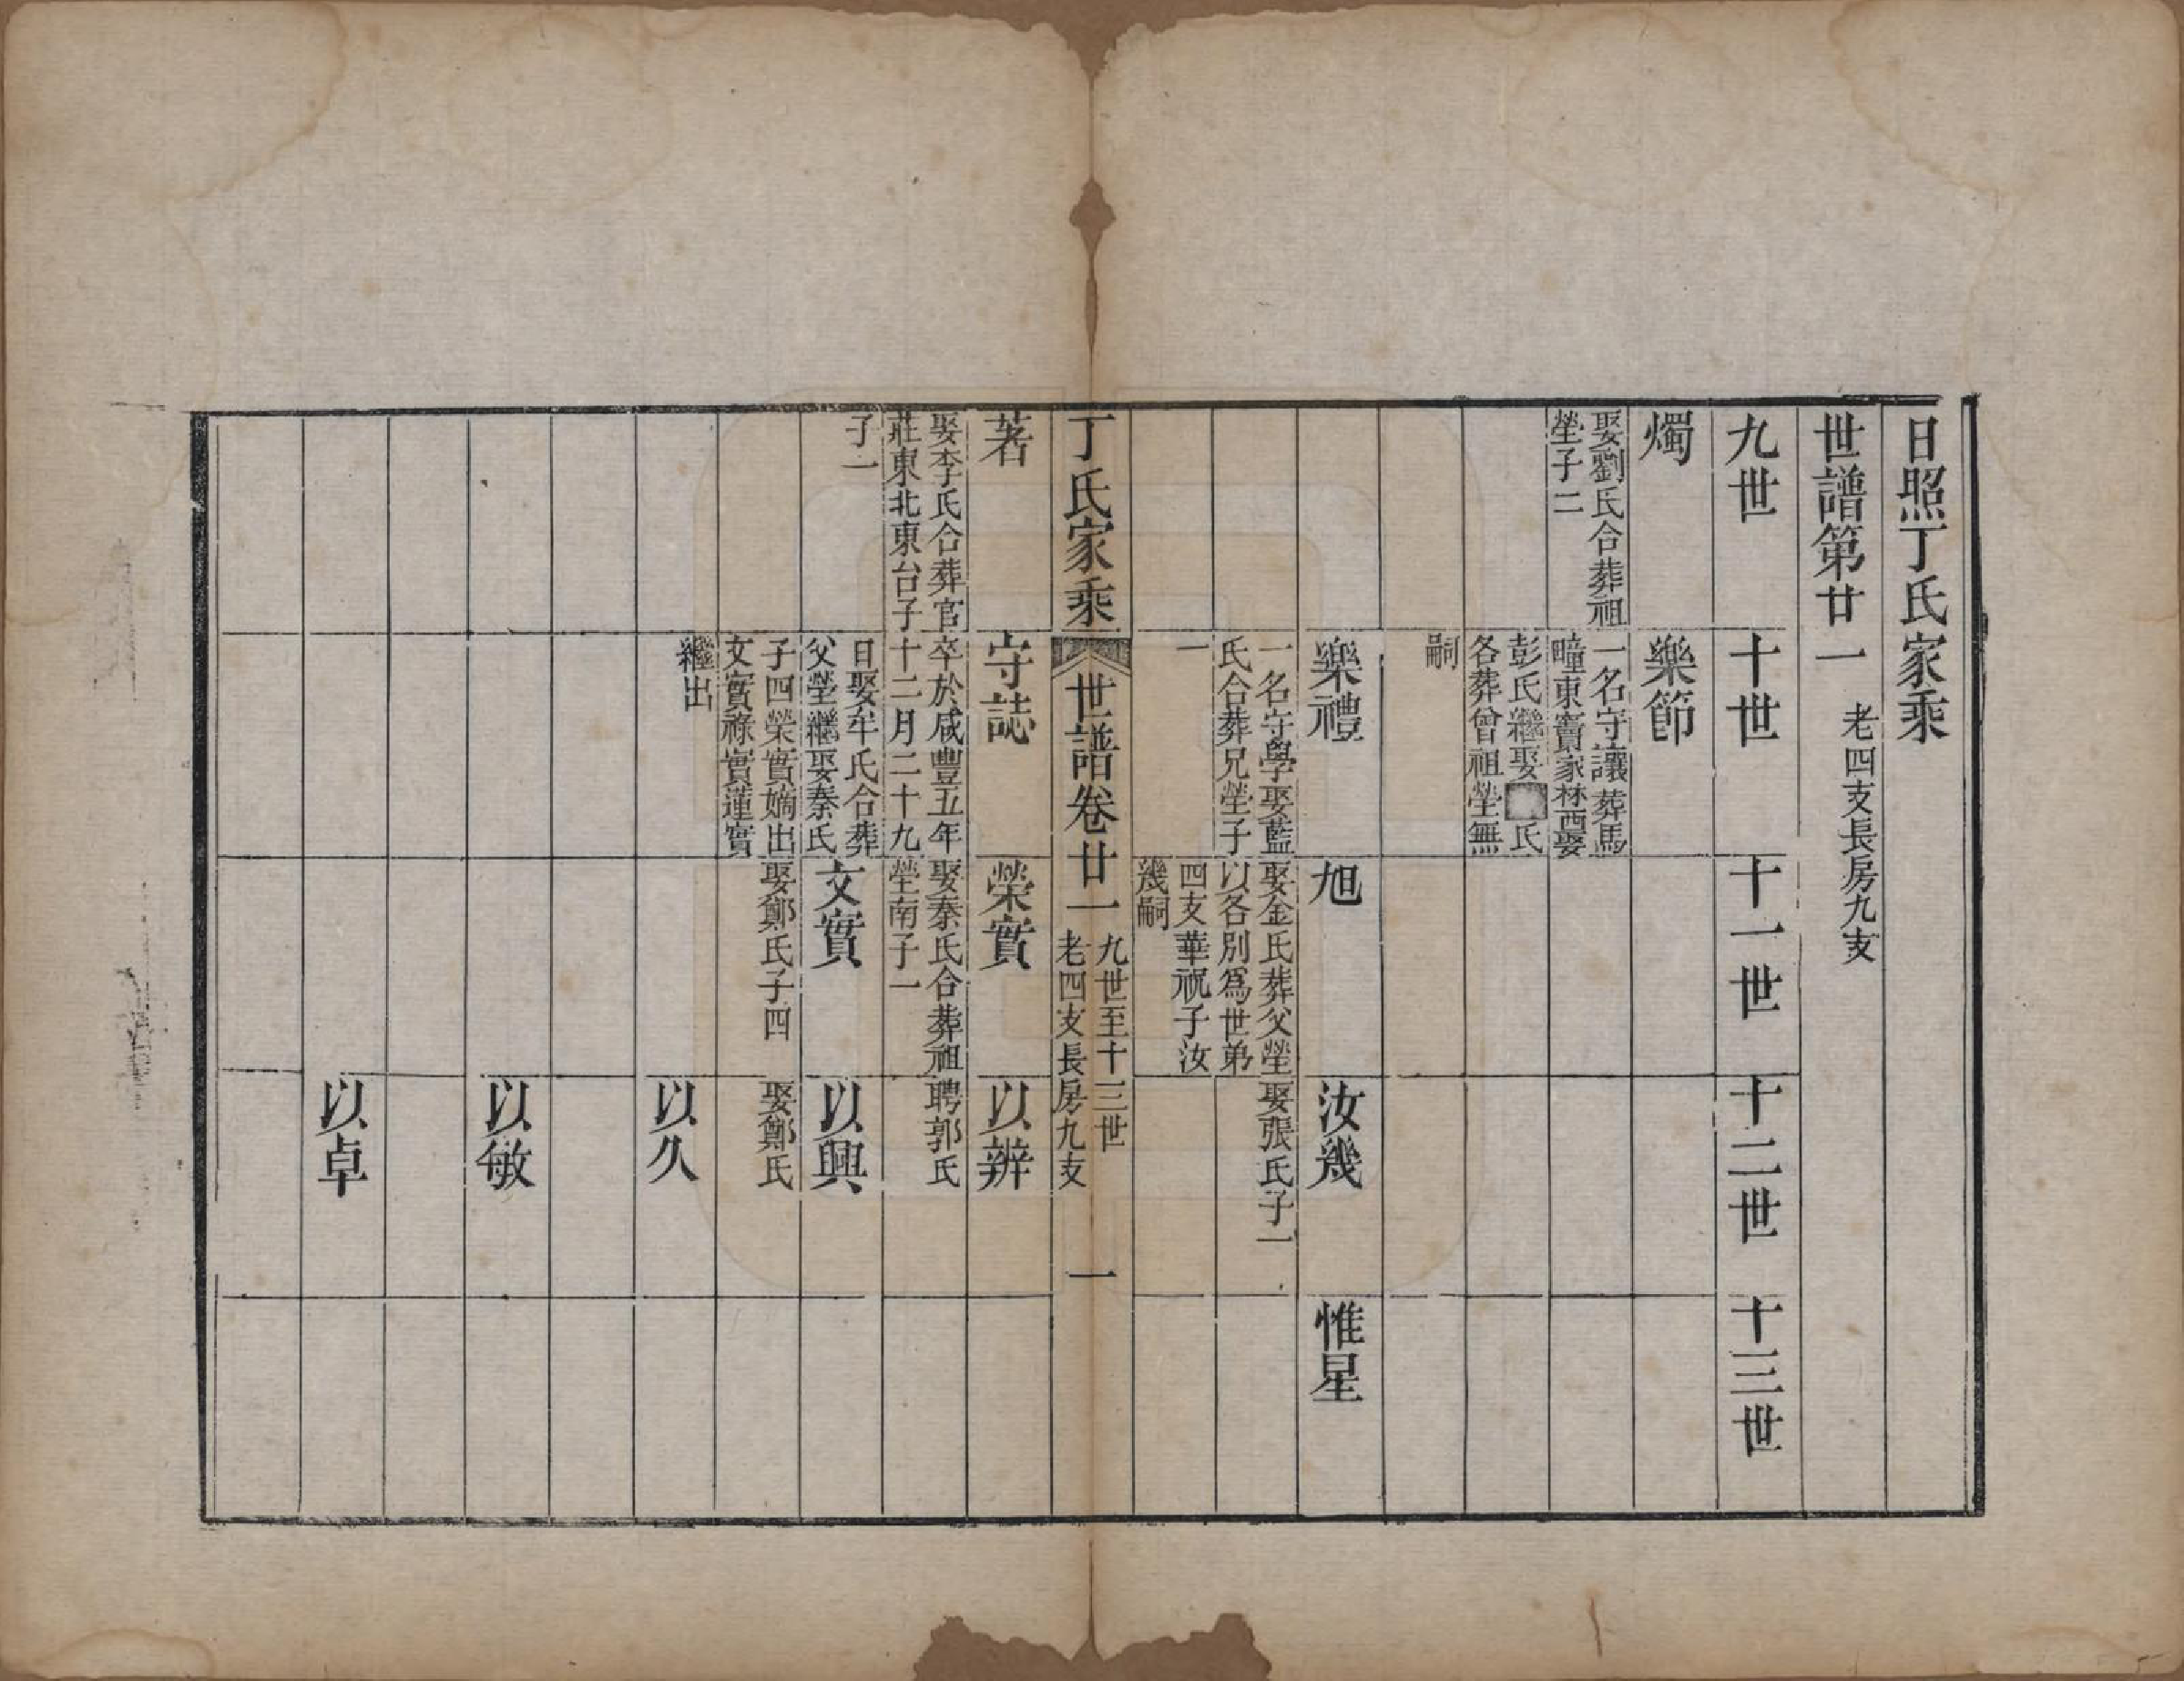 日照丁氏家乘
世譜第廿一　老四支長房九支
九世　十世　十一世　十二世　十三世
燭　樂節
娶劉氏合葬祖　一名守讓葬馬
塋子二　疃東竇家林西娶
彭氏繼娶　氏
各葬曾祖塋無
嗣
樂禮　旭　汝幾　惟星
一名守學娶藍　娶金氏葬父塋　娶張氏子一
氏合葬兄塋子　以各別爲世弟
一　四支華祝子汝
幾嗣
丁氏家乘　世譜卷廿一　九世至十三世
老四支長房九支　一
著　守誌　榮實　以辨
娶李氏合葬官　卒於咸豐五年　娶秦氏合葬祖　聘郭氏
莊東北東台子　十二月二十九　塋南子一
子一　日娶牟氏合葬　文實　以興
父塋繼娶秦氏
子四榮實嫡出　娶鄭氏子四　娶鄭氏
文實祿實蓮實
繼出
以久
以敏
以卓